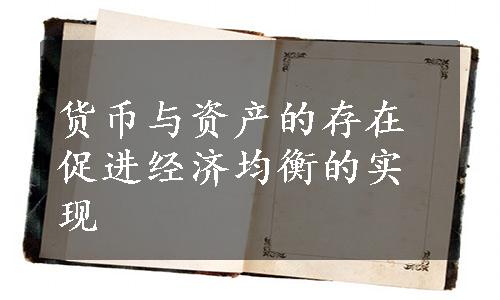 货币与资产的存在
促进经济均衡的实
现